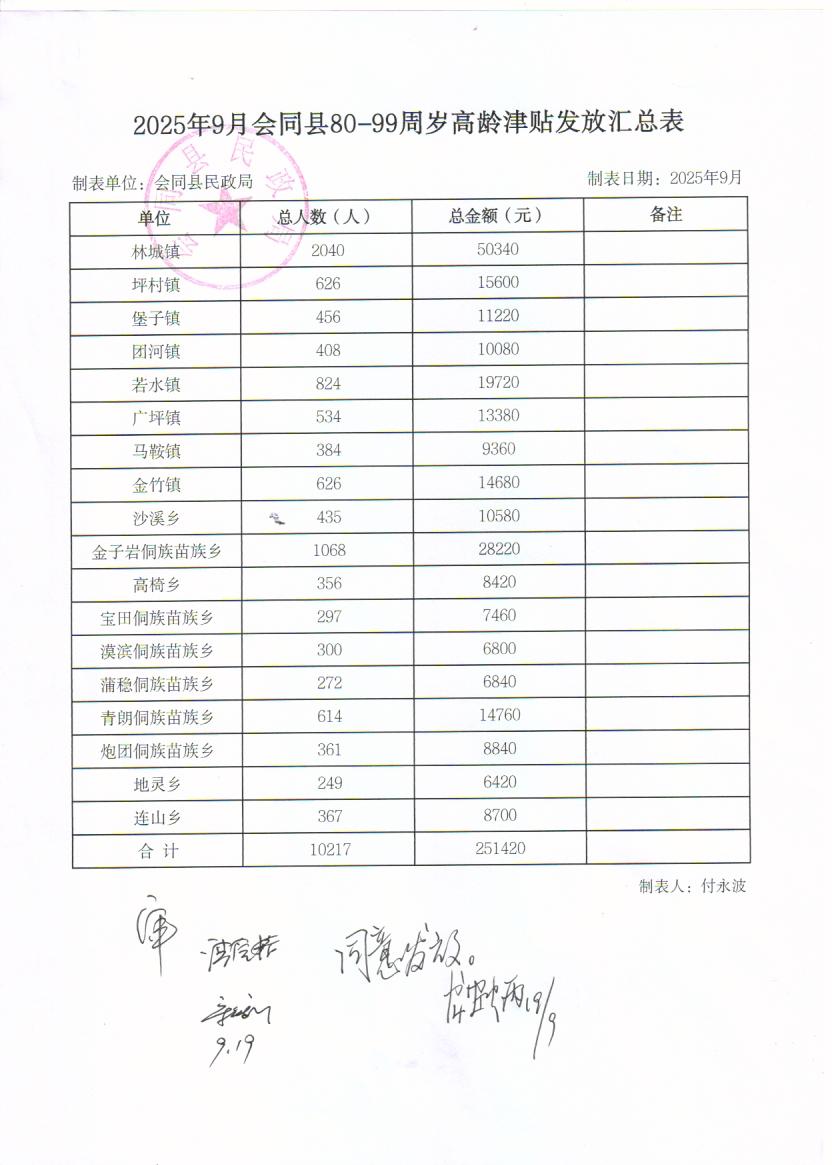 2025年9月会同县80-99周岁高龄津贴发放汇总表
会同县民政局
制表单位：会同县民政局 制表日期：2025年9月
单位 总人数（人） 总金额（元） 备注
林城镇 2040 50340
坪村镇 626 15600
堡子镇 456 11220
团河镇 408 10080
若水镇 824 19720
广坪镇 534 13380
马鞍镇 384 9360
金竹镇 626 14680
沙溪乡 435 10580
金子岩侗族苗族乡 1068 28220
高椅乡 356 8420
宝田侗族苗族乡 297 7460
漠滨侗族苗族乡 300 6800
蒲稳侗族苗族乡 272 6840
青朗侗族苗族乡 614 14760
炮团侗族苗族乡 361 8840
地灵乡 249 6420
连山乡 367 8700
合 计 10217 251420
制表人：付永波
同意发放。
19/9
9.19